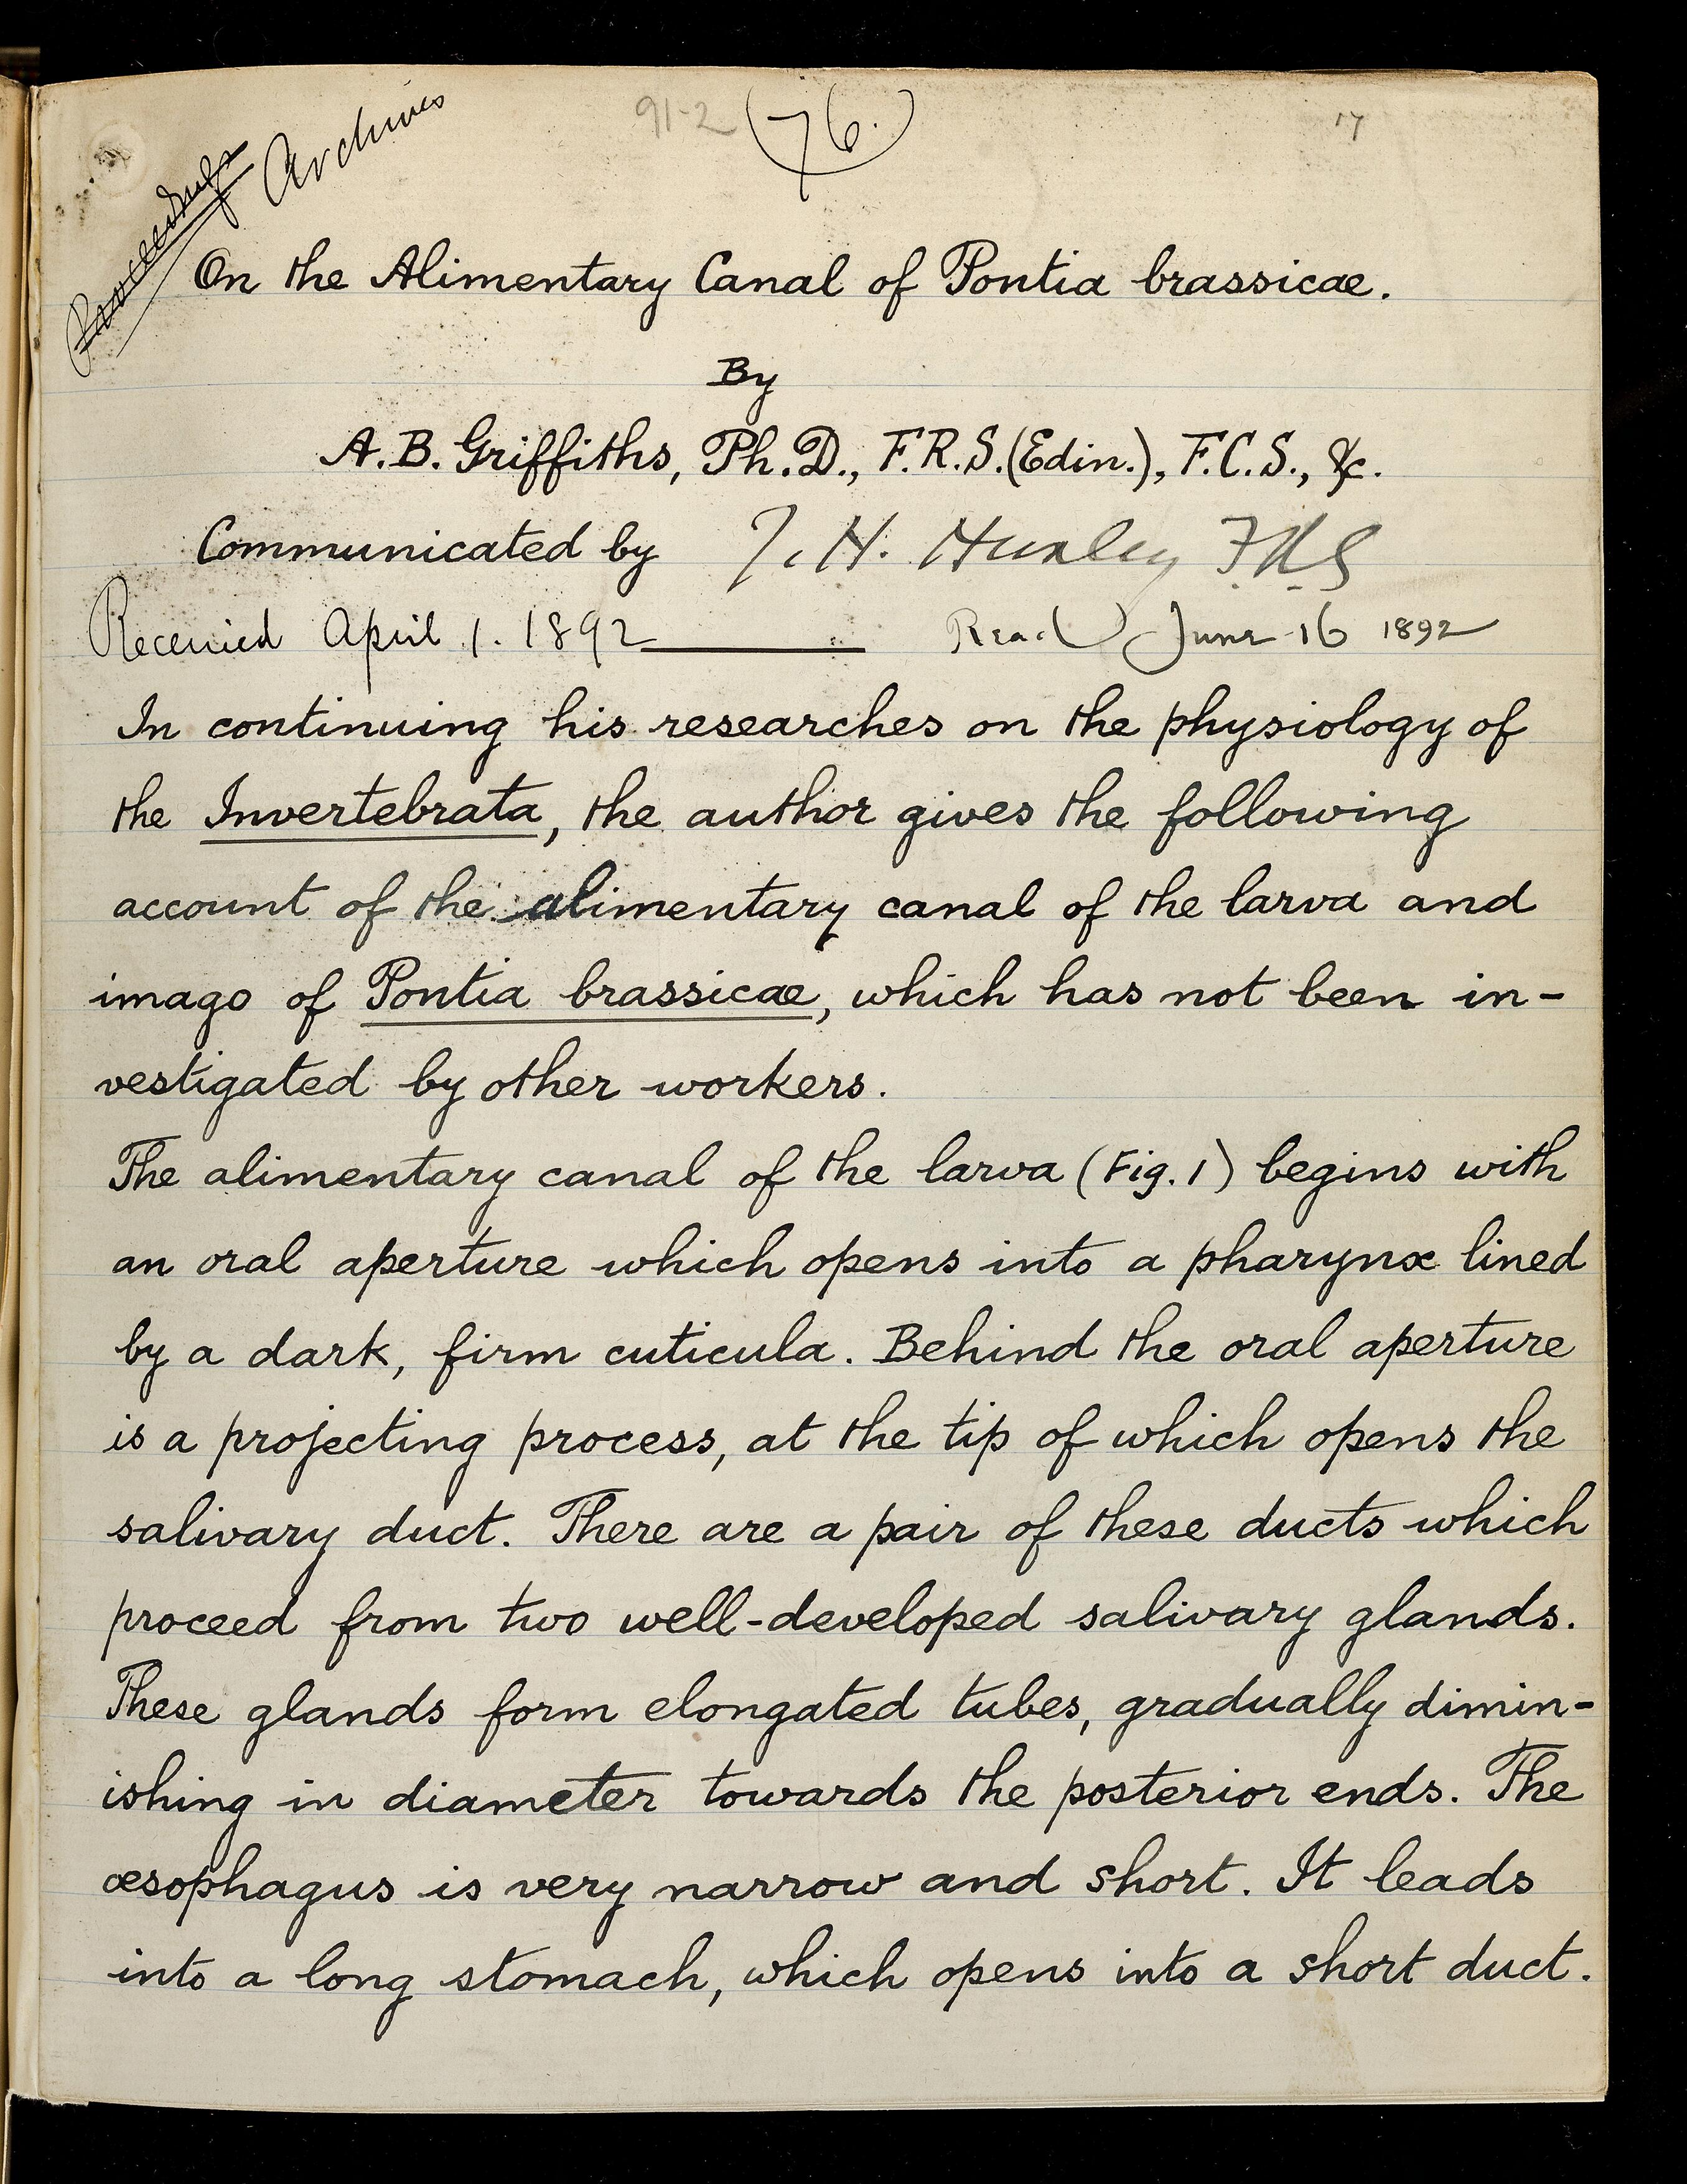 91-2 (76.) 17
Proceedings Archives
On the Alimentary Canal of Pontia brassicae.
By
A. B. Griffiths, Ph. D., F. R. S. (Edin.), F. C. S., &c.
Communicated by T. H. Huxley FRS
Received April 1. 1892 Read June 16 1892
In continuing his researches on the physiology of
the Invertebrata, the author gives the following
account of the alimentary canal of the larva and
imago of Pontia brassicae, which has not been in-
vestigated by other workers.
The alimentary canal of the larva (Fig. 1) begins with
an oral aperture which opens into a pharynx lined
by a dark, firm cuticula. Behind the oral aperture
is a projecting process, at the tip of which opens the
salivary duct. There are a pair of these ducts which
proceed from two well-developed salivary glands.
These glands form elongated tubes, gradually dimin-
ishing in diameter towards the posterior ends. The
œsophagus is very narrow and short. It leads
into a long stomach, which opens into a short duct.